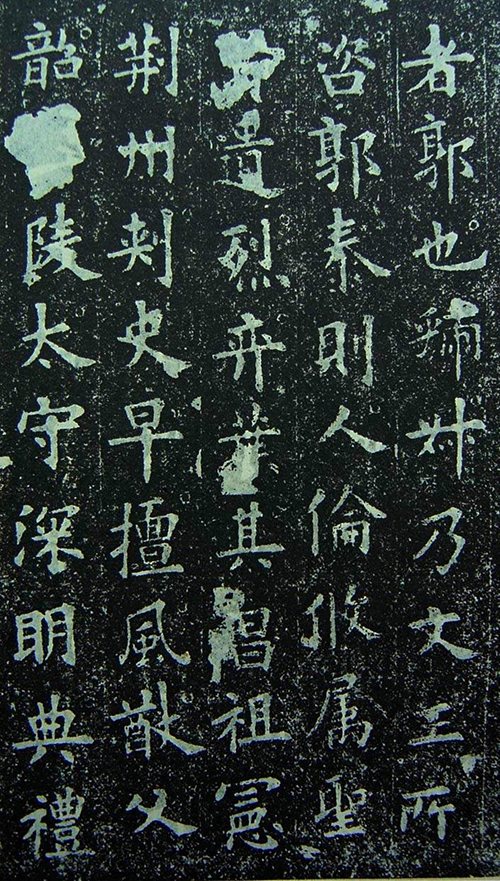 者郭也虢叔乃文王所
咨郭泰則人倫攸属聖
遺烈弈葉其昌祖憲
荊州刺史早擅風猷父
韶陵太守深明典禮